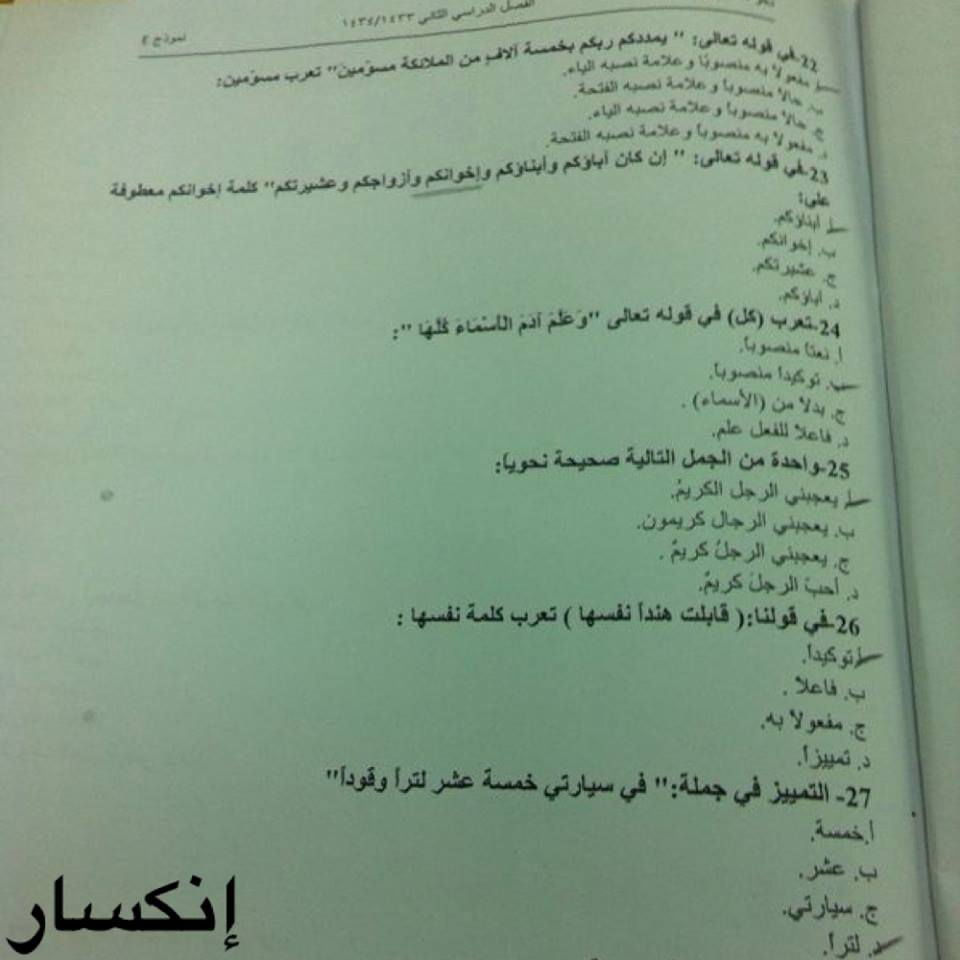 الفصل الدراسي الثاني ١٤٣٤/١٤٣٣
نموذج E
22-في قوله تعالى: " يمددكم ربكم بخمسة آلاف من الملائكة مسوّمين" تعرب مسوّمين:
أ. مفعولاً به منصوباً وعلامة نصبه الياء.
ب. حالاً منصوباً وعلامة نصبه الفتحة.
ج. حالاً منصوباً وعلامة نصبه الياء.
د. مفعولاً به منصوباً وعلامة نصبه الفتحة.
23-في قوله تعالى: " إن كان آباؤكم وأبناؤكم وإخوانكم وأزواجكم وعشيرتكم" كلمة إخوانكم معطوفة
على:
أ. أبناؤكم.
ب. إخوانكم.
ج. عشيرتكم.
د. آباؤكم.
24-تعرب (كل) في قوله تعالى "وَعَلَّمَ آدَمَ الْأَسْمَاءَ كُلَّهَا ":
أ. نعتاً منصوباً.
ب. توكيداً منصوباً.
ج. بدلاً من (الأسماء) .
د. فاعلاً للفعل علم.
25-واحدة من الجمل التالية صحيحة نحوياً:
أ. يعجبني الرجل الكريمُ.
ب. يعجبني الرجال كريمون.
ج. يعجبني الرجلُ كريمٌ .
د. أحبّ الرجلَ كريمٌ.
26-في قولنا:( قابلت هنداً نفسها ) تعرب كلمة نفسها :
أ. توكيداً.
ب. فاعلاً .
ج. مفعولاً به.
د. تمييزاً.
27- التمييز في جملة:" في سيارتي خمسة عشر لتراً وقوداً"
أ.خمسة.
ب. عشر.
ج. سيارتي.
د. لتراً.
إنكسار